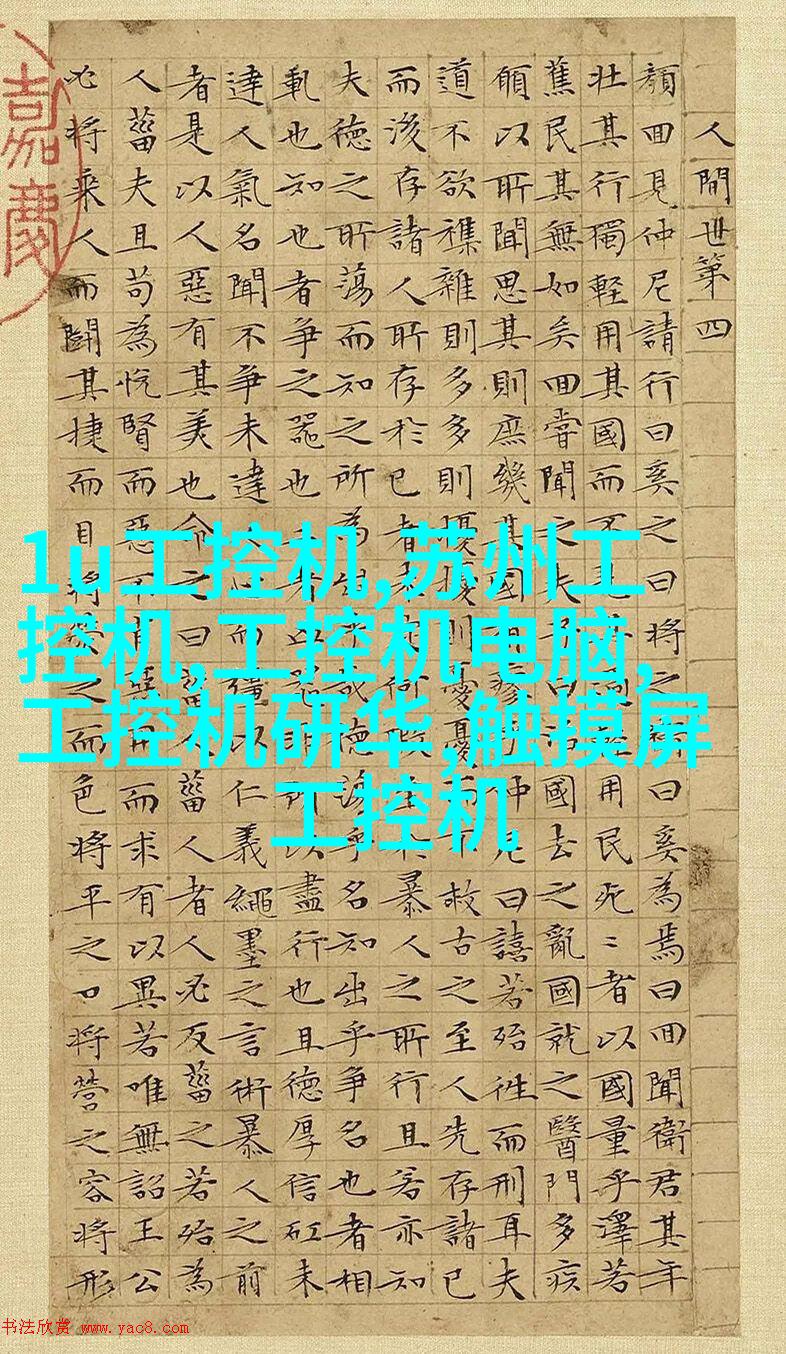 人間世第四
顏回見仲尼請行曰奚之曰將之曰奚為焉曰回聞衛君其年
壯其行獨輕用其國而不用民死〻者以國量乎澤若
蕉民其無如矣回嘗聞之夫國去之亂國就之醫門多疾
願以所聞思其則庶幾其國仲尼曰譆若殆往而刑耳夫
道不欲襍雜則多多則擾擾則憂憂而不救古之至人先存諸已
而後存諸人所存於已者暴人之所行且若亦知
夫德之所蕩而知之所為出乎哉德蕩乎名知出乎爭名也者相
軋也知也者爭之器也所以盡行也且德厚信矼未
達人氣名聞不爭未達而彊以仁義繩墨之言術暴人之前
者是以人惡有其美也命之曰菑人菑人者人必反菑之若殆為
人菑夫且苟為悅賢而惡不用而求有以異若唯無詔王公
必將乘人而鬭其捷而目將之而色將平之口將營之容將形
嘉慶
1u工控机,苏州工
控机,工控机电脑,
工控机研华,触摸屏
工控机
书法欣赏 www.yac8.com